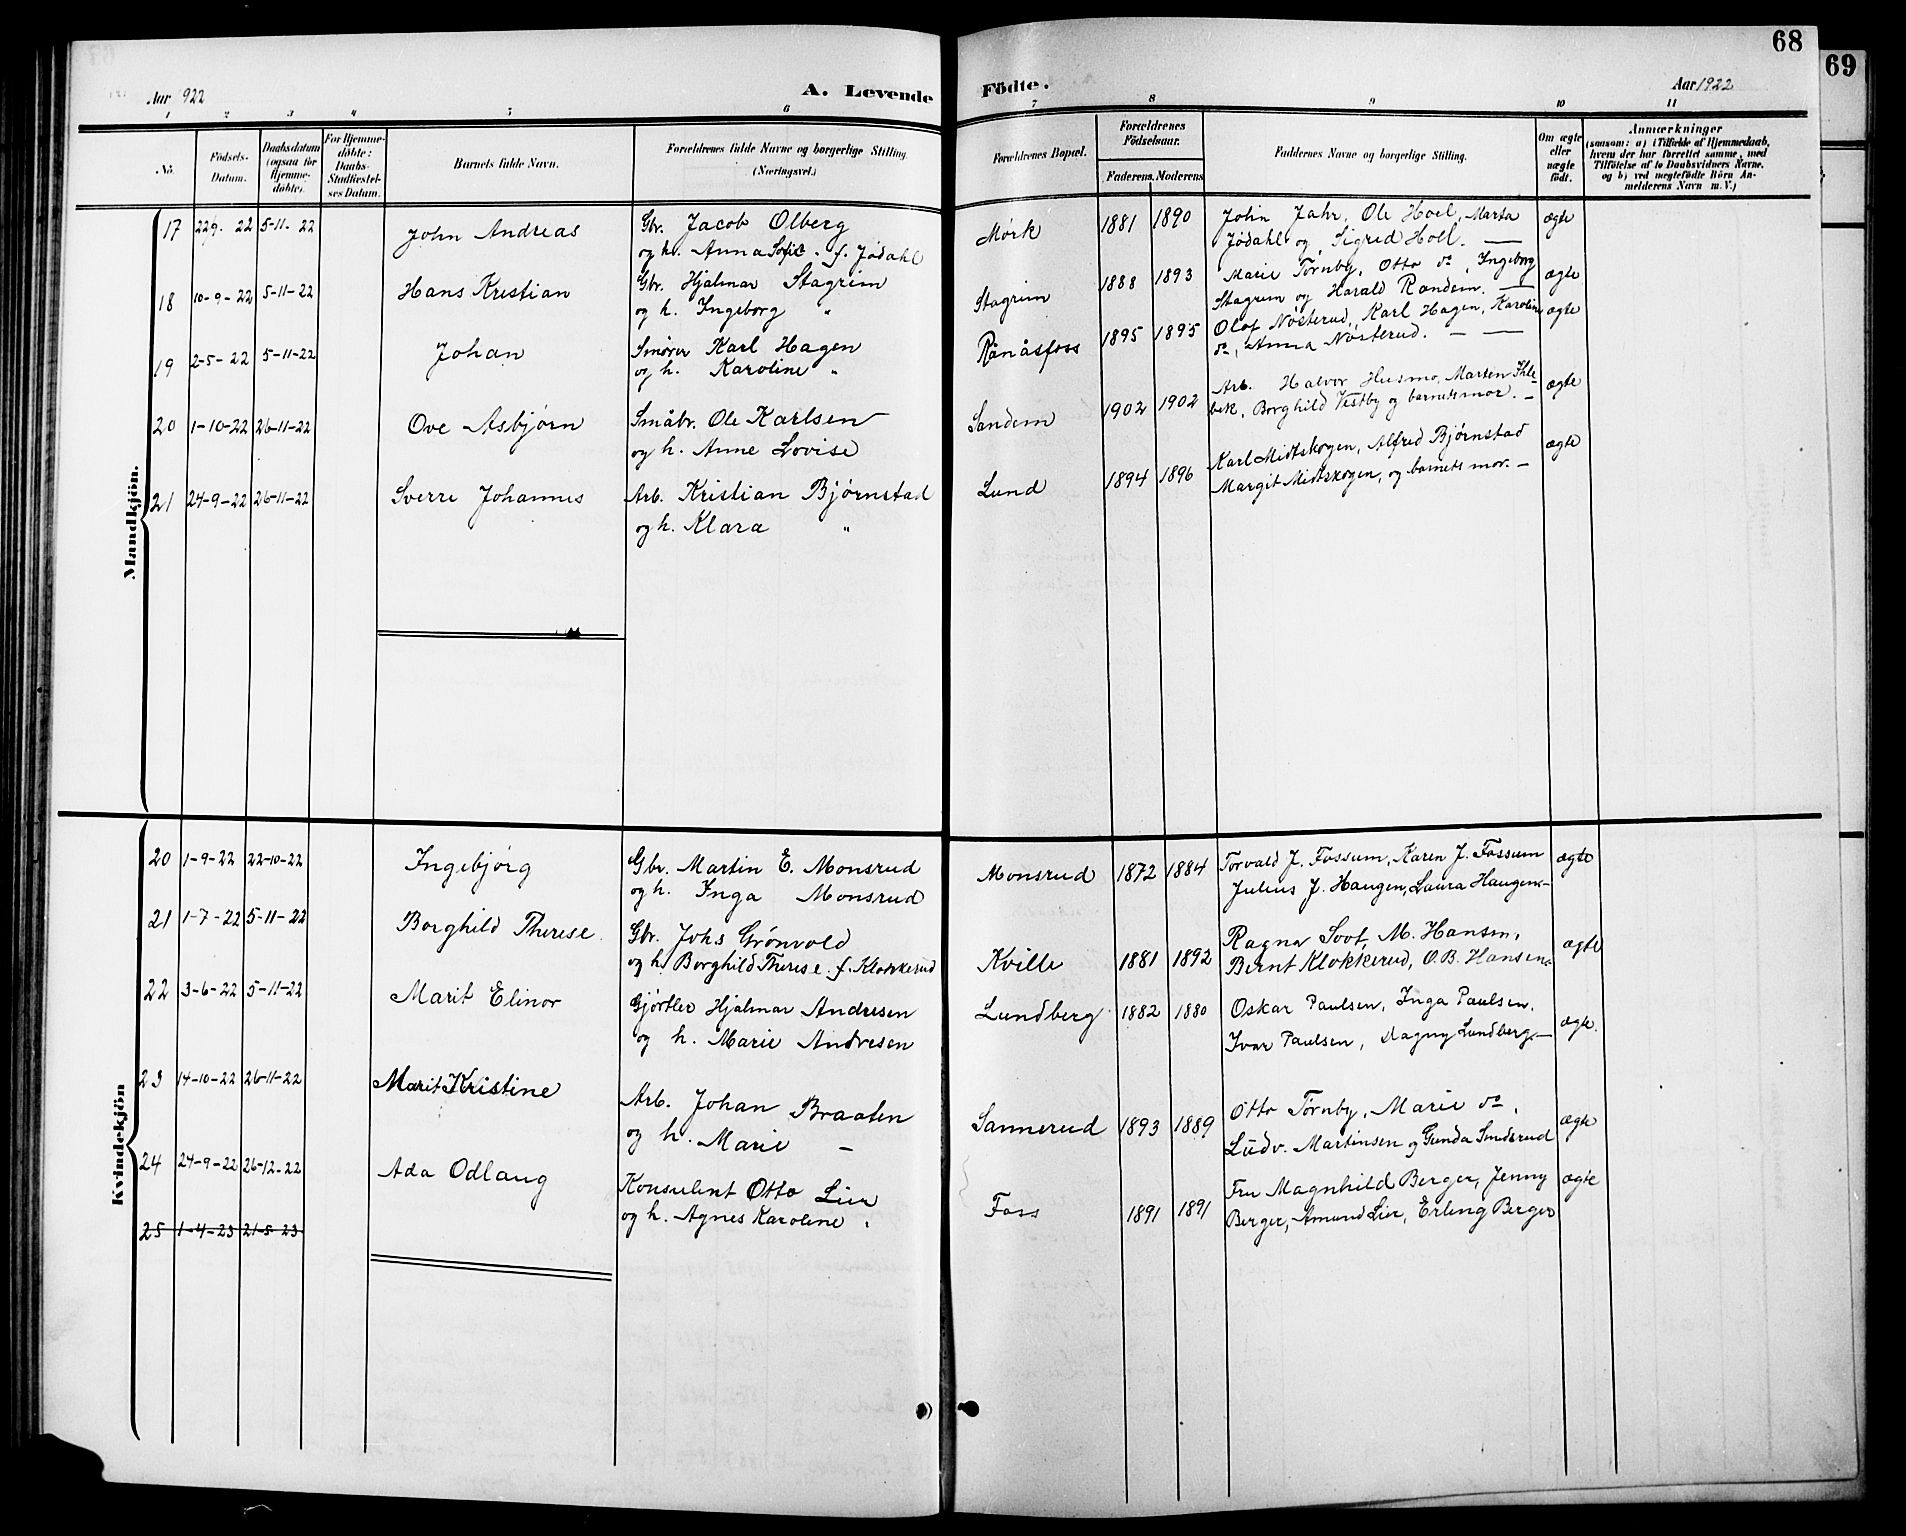 68
69
Aar 1922
A. Levende
Födte.
Aar 1922
1 2 3 4 5 6 7 8 9 10 11
No. Födsels-Datum. Daabsdatum (ogsaa for Hjemmedöbte). For Hjemmedöbte: Daabs-Stadfæstelses Datum. Barnets fulde Navn. Forældrenes fulde Navne og borgerlige Stilling. (Næringsvei.) Forældrenes Bopæl. Forældrenes Födselsaar. Faderens. Moderens. Faddernes Navne og borgerlige Stilling. Om ægte eller uægte födt. Anmærkninger (saasom: a) i Tilfælde af Hjemmedaab, hvem der har forrettet samme, med Tilföielse af to Daabsvidners Navne, og b) ved uægtefödte Börn Anmelderens Navn m. V.)
Mandkjön.
17 22/9. 22 5-11-22 John Andreas Gbr. Jacob Olberg Mörk 1881 1890 John Jahr, Ole Hoel, Marta ægte
og h. Anna Sofie. f. Jødahl Jødahl og Sigrid Holl. —
18 10-9-22 5-11-22 Hans Kristian Gbr. Hjalmar Stagrim Stagrim 1888 1893 Marie Tørnby, Otto do, Ingeborg ægte
og h. Ingeborg " Stagrim og Harald Randem. —
19 2-5-22 5-11-22 Johan Smører Karl Hagen Rånåsfoss 1895 1895 Olaf Nösterud, Karl Hagen, Karoline ægte
og h. Karoline " do, Anna Nösterud. — —
20 1-10-22 26-11-22 Ove Asbjørn Småbr. Ole Karlsen Sandem 1902 1902 Arb. Halvor Husmo, Marten Ihle- ægte
og h. Anne Lovise bek, Borghild Vestby og barnets mor. —
21 24-9-22 26-11-22 Sverre Johannes Arb. Kristian Bjørnstad Lund 1894 1896 Karl Midtskogen, Alfred Bjørnstad ægte
og h. Klara " Margit Midtskogen, og barnets mor. —
Kvindekjön
20 1-9-22 22-10-22 Ingebjørg Gbr. Martin E. Monsrud Monsrud 1872 1884 Torvald J. Fossum, Karen J. Fossum ægte
og h. Inga Monsrud Julius J. Haugen, Laura Haugen. —
21 1-7-22 5-11-22 Borghild Therese. Gbr. Johs Grønvold Kville 1881 1892 Ragna Soot, M. Hansen, ægte
og h. Borghild Therese. f. Klokkerud Bernt Klokkerud, O. B. Hansen.
22 3-6-22 5-11-22 Marit Elinor Gjörtler Hjalmar Andresen Lundberg 1882 1880 Oskar Paulsen, Inga Paulsen, ægte.
og h. Marie Andresen Ivar Paulsen, Dagny Lundberg. —
23 14-10-22 26-11-22 Marit Kristine Arb. Johan Braaten Sannerud 1893 1889 Otto Tørnby, Marie do, ægte
og h. Marie — Ludv. Martinsen og Gunda Smdsrud
24 24-9-22 26-12-22 Ada Odlaug Konsulent Otto Lier Foss 1891 1891 Fru Magnhild Berger, Jenny ægte
og h. Agnes Karoline " Berger, Amund Lier, Erling Berger
25 1-4-23 21-5-23